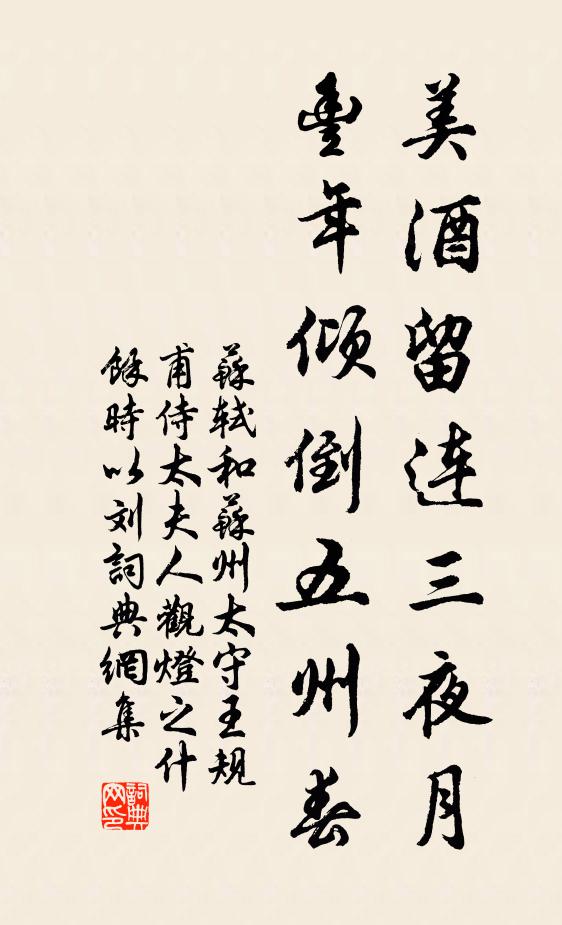 美酒留连三夜月
豐年倾倒五州春
蘇轼和蘇州太守王规
甫侍太夫人觀燈之什
餘時以刘詞典網集
詞典
网印